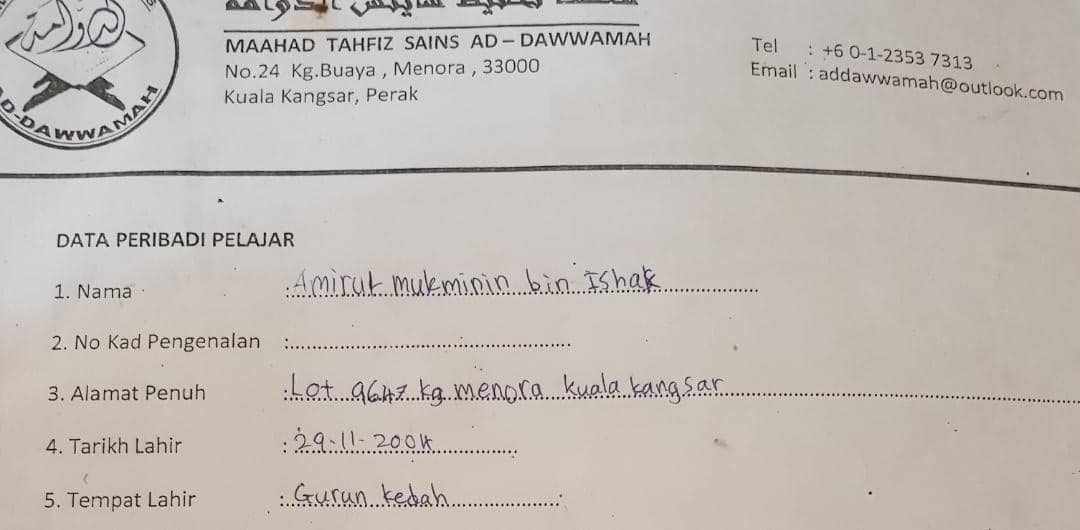 MAAHAD TAHFIZ SAINS AD – DAWWAMAH
No.24 Kg.Buaya , Menora , 33000
Kuala Kangsar, Perak
Tel : +6 0-1-2353 7313
Email : addawwamah@outlook.com
AD-DAWWAMAH
DATA PERIBADI PELAJAR
1. Nama :Amirul mukminin bin Ishak
2. No Kad Pengenalan :
3. Alamat Penuh :Lot 9647 kg menora kuala kangsar
4. Tarikh Lahir : 29-11-2004
5. Tempat Lahir : Gurun kedah